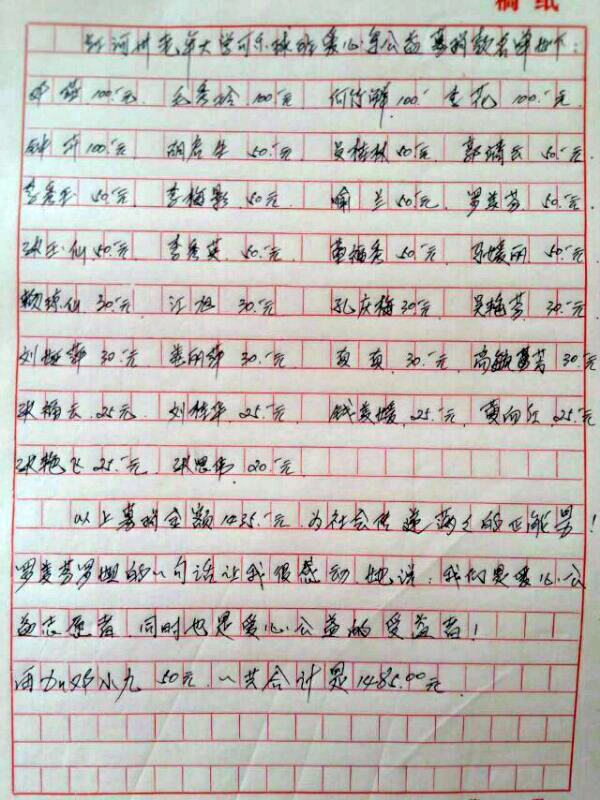 稿纸
红河州老年大学可乐球班爱心与公益募捐款名单如下:
100.元 毛秀玲 100.元 何竹 100. 李花 100.元
钟芹 100.元 胡 50.元 吴桂林 50.元 郭靖云 50.元
李秀 50.元 李梅影 50元 喻兰 50元 罗美芬 50.元
张玉仙 50.元 李秀英 50.元 董梅秀 50.元 马媛丽 50.元
赖琼仙 30.元 江旭 30.元 孔庆梅 30元 吴艳芬 30.元
刘 30元 丽莎 30.元 30.元 高敏 30元
张梅云 25元 刘桂华 25.元 钱美媛 25.元 黄向红 25.元
张艳飞 25.元 张思伟 20.元
以上募捐金额1435.元,为社会传递满满的正能量!
罗美芬罗姐的一句话让我很感动,她说:我们是爱心公
益志愿者,同时也是爱心公益的受益者!
再加邓小九 50元.一共合计是1485.00元.